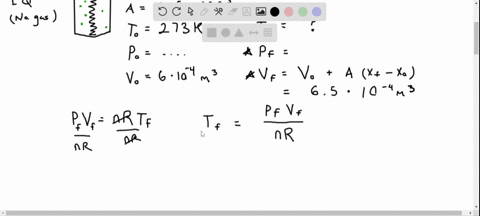 1 Q
(No gas)
A =
T₀ = 273 K
= ?
P₀ = ....
P_f =
V₀ = 6 · 10⁻⁴ m³
V_f = V₀ + A (x_f - x₀)
= 6.5 · 10⁻⁴ m³
P_f V_f = nR T_f
nR nR
T_f = P_f V_f
nR